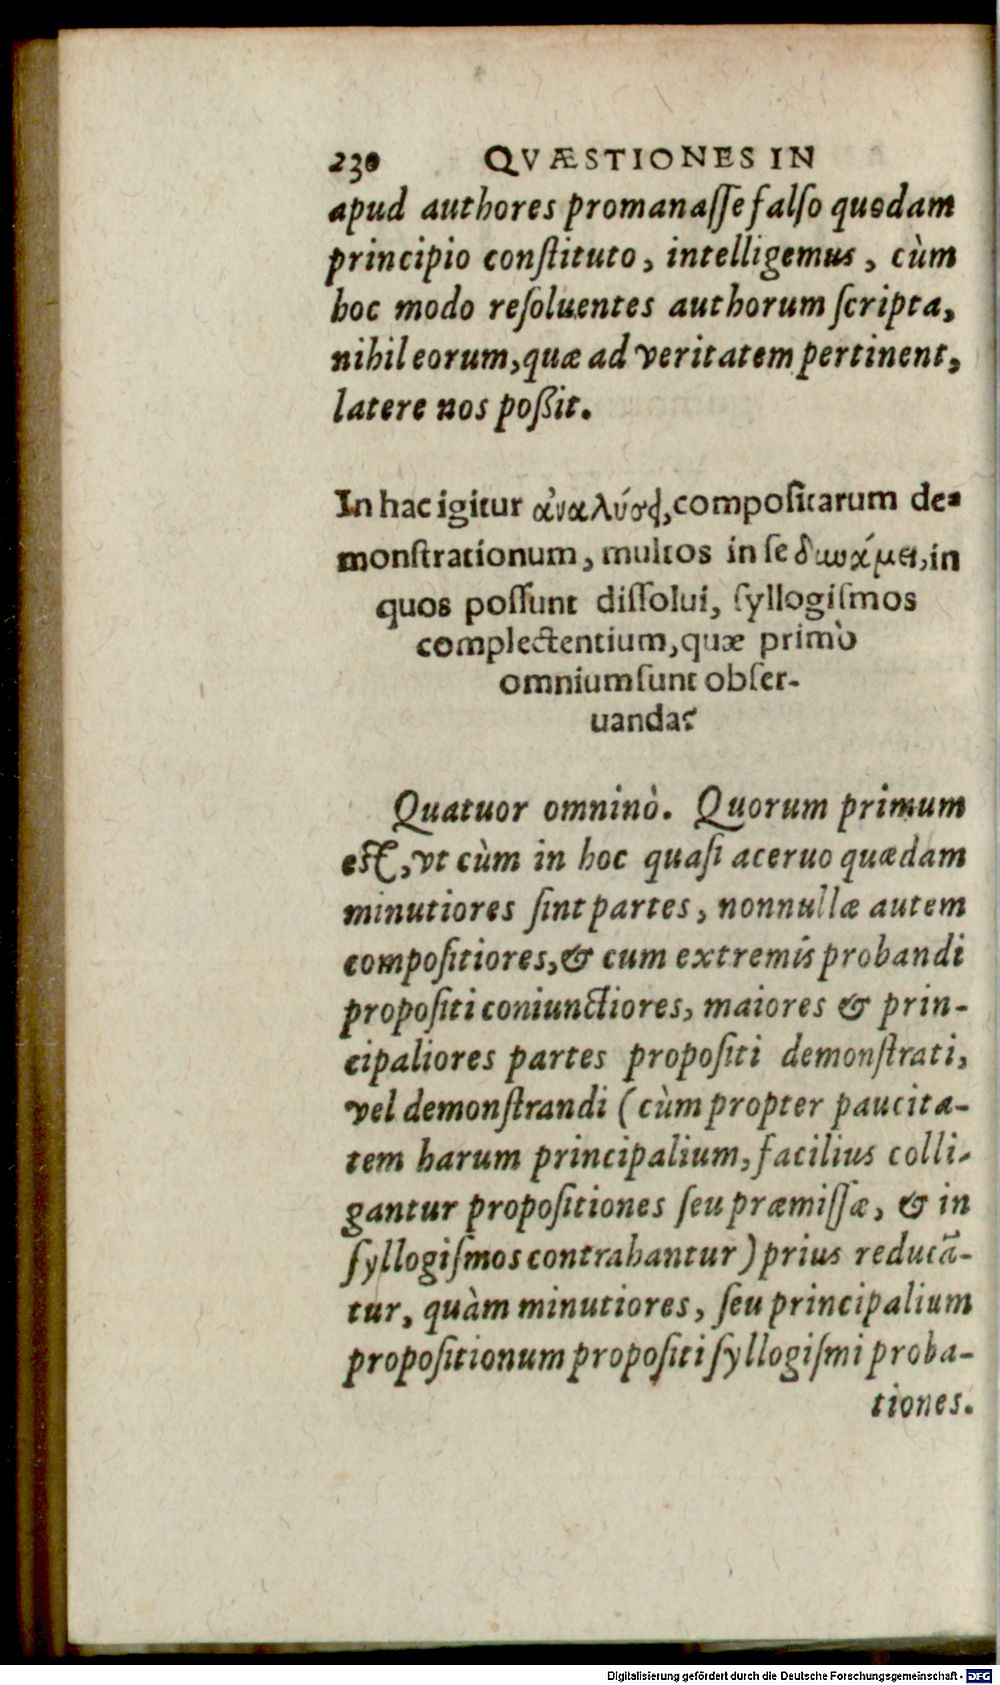 230 QVÆSTIONES IN
apud authores promanaſſe falſo quodam
principio conſtituto, intelligemus, cùm
hoc modo reſoluentes authorum ſcripta,
nihil eorum, quæ ad veritatem pertinent,
latere nos poßit.
In hac igitur ἀναλύσει, compoſitarum de-
monſtrationum, multos in ſe δυνάμει, in
quos poſſunt diſſolui, ſyllogiſmos
complectentium, quæ primò
omnium ſunt obſer-
uanda?
Quatuor omninò. Quorum primum
eſt, vt cùm in hoc quaſi aceruo quædam
minutiores ſint partes, nonnullæ autem
compoſitiores, & cum extremis probandi
propoſiti coniunctiores, maiores & prin-
cipaliores partes propoſiti demonſtrati,
vel demonſtrandi (cùm propter paucita-
tem harum principalium, facilius colli-
gantur propoſitiones ſeu præmiſſæ, & in
ſyllogiſmos contrahantur) prius reducā-
tur, quàm minutiores, ſeu principalium
propoſitionum propoſiti ſyllogiſmi proba-
tiones.
Digitalisierung gefördert durch die Deutsche Forschungsgemeinschaft - DFG